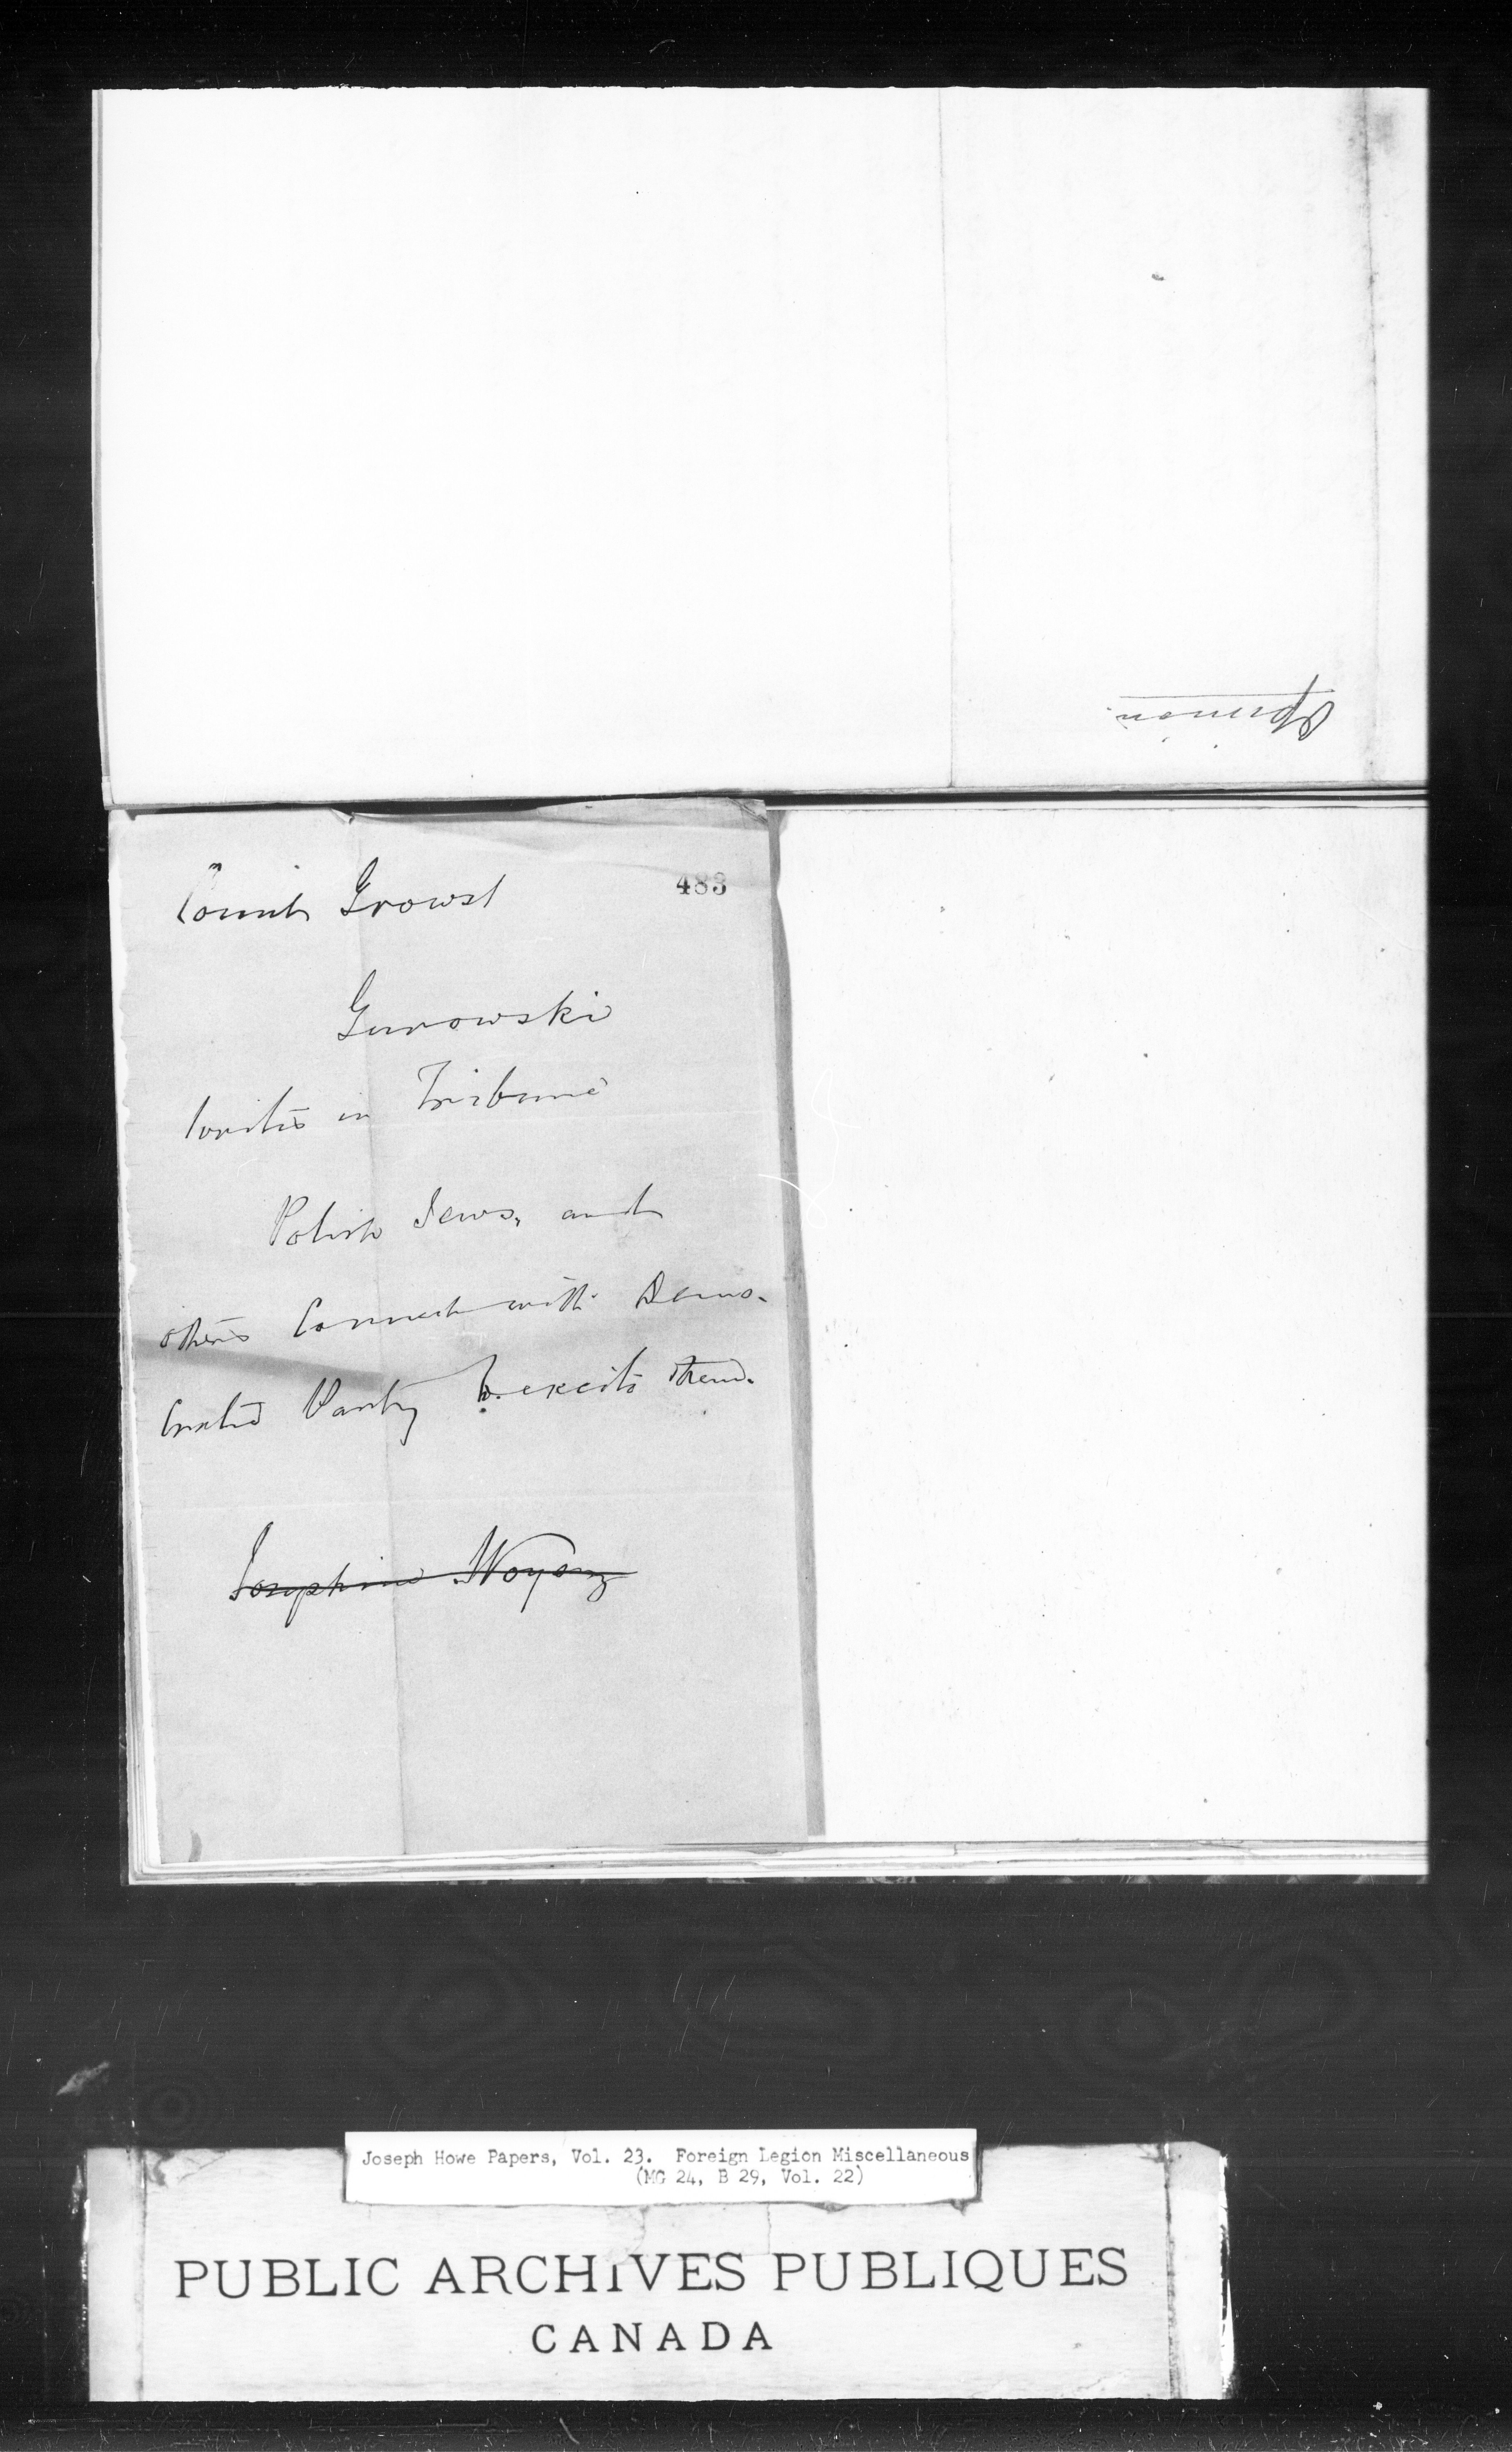 Opinion
483
Count Growst
Gurowski
writes in Tribune
Polish Jews, and
others connect with Demo-
cratic Party to excite them.
Josephine
Joseph Howe Papers, Vol. 23. Foreign Legion Miscellaneous
(MG 24, B 29, Vol. 22)
PUBLIC ARCHIVES PUBLIQUES
CANADA